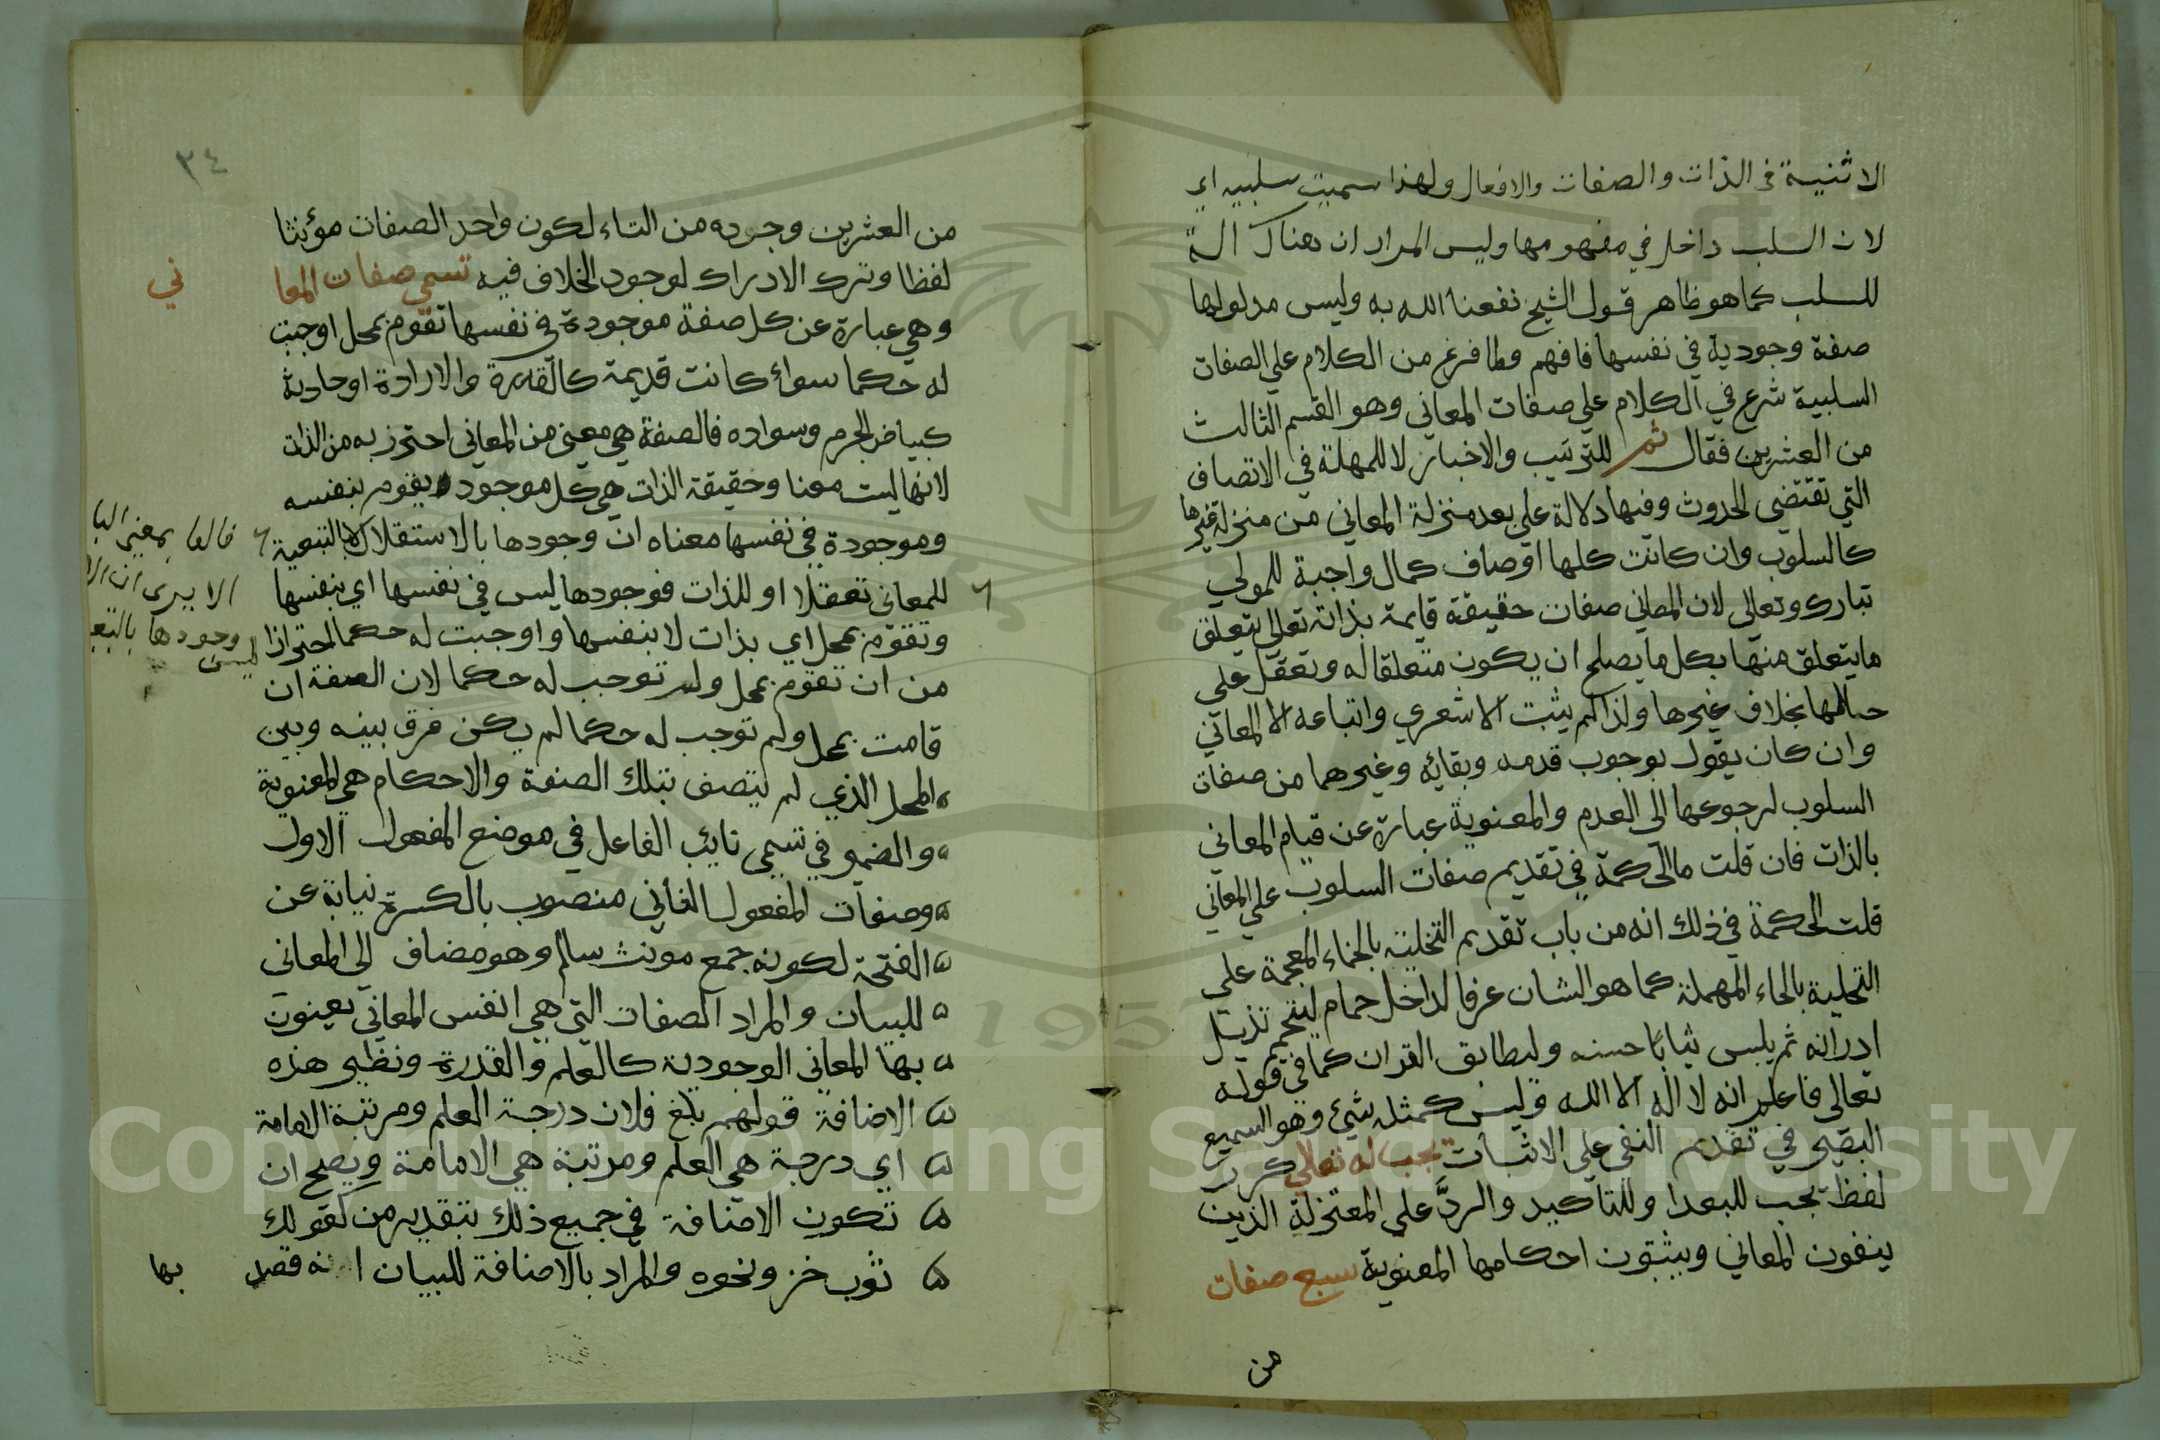 الاثنية في الذات والصفات والافعال ولهذا سميت سلبيه اي
لان السلب داخل في مفهومها وليس المراد ان هناك الة
للسلب كما هو ظاهر قول الشيخ نفعنا الله به وليس مدلولها
صفة وجودية في نفسها فافهم ولما فرغ من الكلام علي الصفات
السلبية شرع في الكلام علي صفات المعاني وهو القسم الثالث
من العشرين فقال ثم للترتيب والاخبار لا للمهلة في الاتصاف
التي تقتضي الحدوث وفيها دلالة علي بعد منزلة المعاني من منزلة غيرها
كالسلوب وان كانت كلها اوصاف كمال واجبة للمولي
تبارك وتعالى لان المعاني صفات حقيقة قايمة بذاته تعالى يتعلق
ما يتعلق منها بكل ما يصلح ان يكون متعلقا له وتعقل علي
حيالها بخلاف غيرها ولذا لم يثبت الاشعري واتباعه الا المعاني
وان كان يقول بوجوب قدمه وبقائه وغيرهما من صفات
السلوب لرجوعها الى العدم والمعنوية عبارة عن قيام المعاني
بالذات فان قلت ما الحكمة في تقديم صفات السلوب علي المعاني
قلت الحكمة في ذلك انه من باب تقديم التخلية بالخاء المعجمة علي
التحلية بالحاء المهملة كما هو الشان عرفا لداخل حمام تزيل
ادرانه ثم يلبس ثيابا حسنه وليطابق القران كما في قوله
تعالى فاعلم انه لا اله الا الله وليس كمثله شيئ وهو السميع
البصير في تقديم النفي علي الاثبات تجب له تعالي كرر
لفظ تجب للبعد او للتأكيد والردَّ علي المعتزلة الذين
ينفون المعاني ويثبتون احكامها المعنوية سبع صفات
من
٣٤
من العشرين وجوده من التاء لكون واحد الصفات مؤنثا
لفظا وترك الادراك لوجود الخلاف فيه تسمي صفات المعا
ني
وهي عبارة عن كل صفة موجودة في نفسها تقوم بمحل اوجبت
له حكما سواء كانت قديمة كالقدرة والارادة او حادثة
كبياض الجرم وسواده فالصفة هي معني من المعاني احترز به من الذات
لانها ليت معنا وحقيقة الذات هي كل موجود يقوم بنفسه
وموجودة في نفسها معناه ان وجودها بالاستقلال لا بالتبعية
للمعاني تعقلا او للذات فوجودها ليس في نفسها اي بنفسها
وتقوم بمحل اي بذات لا بنفسها واوجبت له حكما احترازا
من ان تقوم بمحل ولم توجب له حكما لان الصفة ان
قامت بمحل ولم توجب له حكما لم يكن فرق بينه وبين
المحل الذي لم يتصف بتلك الصفة والاحكام هي المعنوية
والضمير في تسمي نائب الفاعل في موضع المفعول الاول
وصفات المفعول الثاني منصوب بالكسرة نيابة عن
الفتحة لكونه جمع مونث سالم وهو مضاف الي المعاني
للبيان والمراد الصفات التي هي انفس المعاني يعنون
بها المعاني الوجودية كالعلم والقدرة ونظير هذه
الاضافة قولهم بلغ فلان درجة العلم ومرتبة الامامة
اي درجة هي العلم ومرتبة هي الامامة ويصح ان
تكون الاضافة في جميع ذلك بتقدير من كقولك
ثوب خز ونحوه والمراد بالاضافة للبيان انه قصد
بها
بمعني البا
الا يرى ان
وجودها
ليس
Copyright © King Saud University
1957